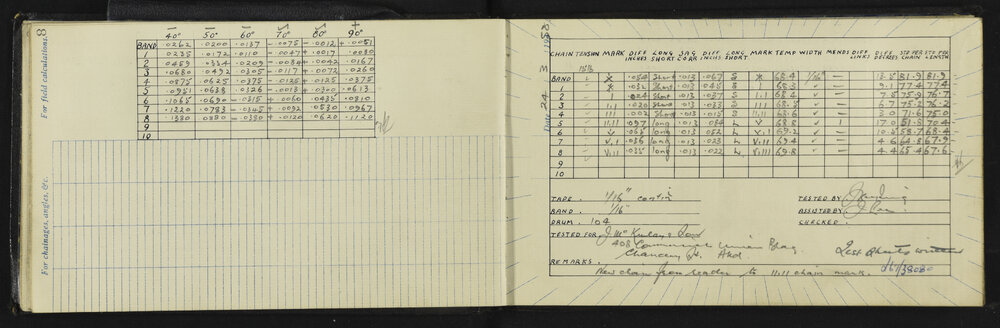 8
For field calculations.
For chainages, angles, &c.
40° 50° 60° 70° 80° 90°
BAND .0262 .0200 .0137 .0075 .0012 + .0051
1 .0235 .0172 .0110 .0047 + .0017 .0080
2 .0459 .0334 .0209 .0084 + .0042 .0167
3 .0680 .0492 .0305 .0117 + .0072 .0260
4 .0875 .0625 .0375 .0125 + .0125 .0375
5 .0951 .0638 .0126 .0300 .0613
6 .1065 .0690 .0315 + .0060 .0435 .0810
7 .1220 .0783 + .0092 .0530 .0967
8 .1380 .0880 .0380 + .0120 .0620 .1120
9
10
Date 24 3
CHAIN TENSION MARK DIFF INCHES LONG SHORT SAG CORR DIFF INCHS LONG SHORT MARK TEMP WIDTH MENDS DIFF LINKS DIFF DEGREES STD FOR CHAIN STD FOR LENGTH
15 lb
BAND .054 Short .013 .067 S 68.4 1/16" 13.5 81.9 81.9
1 Short .013 .045 S 1 68.3 9.1 77.4 77.4
2 1 .024 Short .013 .037 S 1.1 68.4 7.5 76.7
3 1.1 .020 Short .013 .033 S 111 68.5 6.7 75.2 76.2
4 111 .002 Short .013 .015 S 11.11 68.6 3.0 71.6 75.0
5 11.11 .097 long .013 .084 L V 68.8 1 17.0 51.8 70.4
6 V .065 long .013 .052 L V.1 69.2 10.5 58.7 68.4
7 V.1 .036 long .013 .023 L V.11 69.4 4.6 64.8 67.9
8 V.11 .035 long .013 .022 L V.111 69.8 4.4 65.4 67.6
9
10
TAPE. 1/16" contin
BAND. 1/16"
DRUM. 104
TESTED FOR J. McKinlay
408 Commercial Union Bldg
Chancery St. Akd
REMARKS.
New chain from leader to 11.11 chain mark.
TESTED BY
ASSISTED BY
CHECKED.